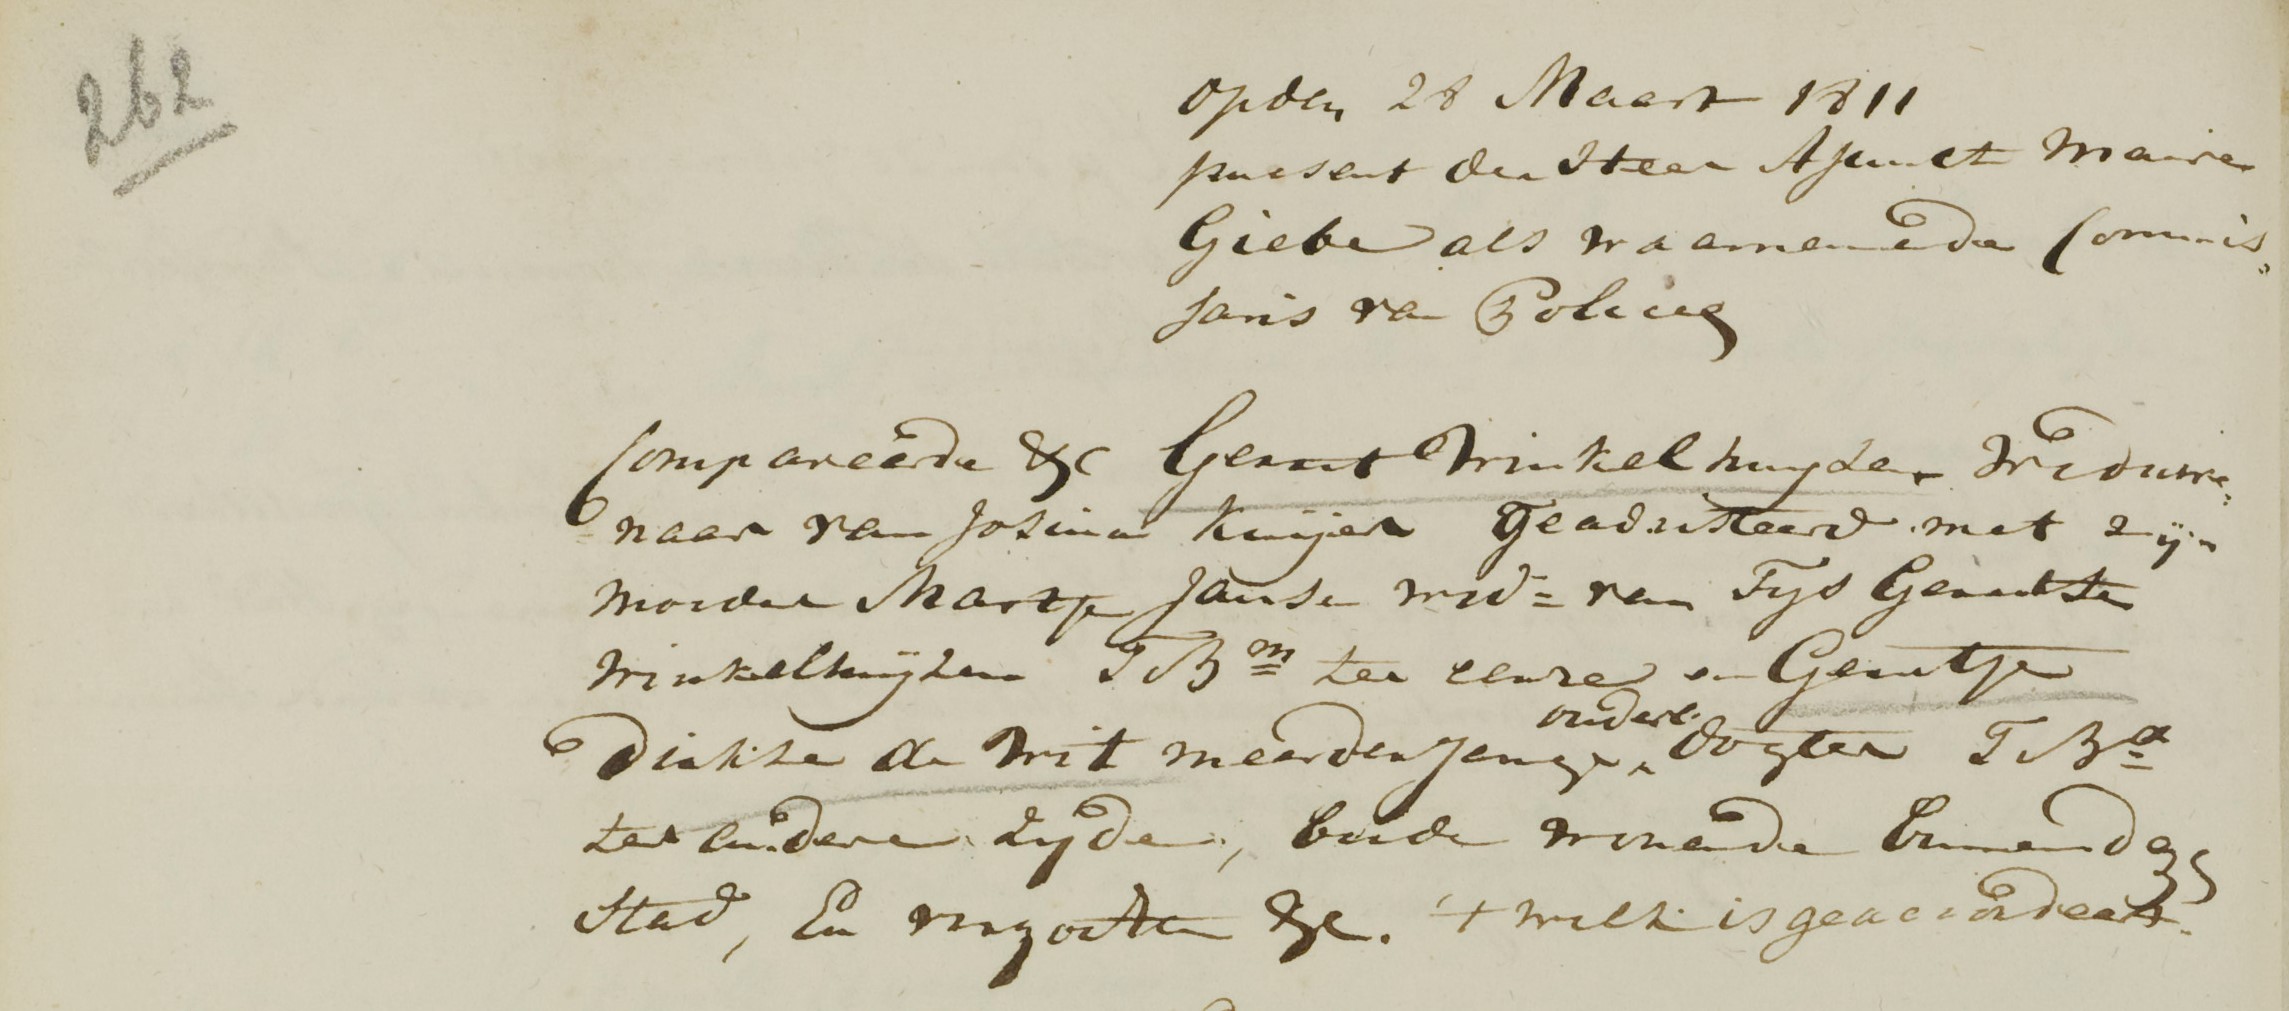 262
Opden 28 Maart 1811
present den Heer Ajunct Maire
Giebe als waarnemende Commis„
saris van Policie
Compareerde &c Gerrit Winkelhuyzen Weduwe„
naar van Josina Kuijer Geadsisteerd met zijn
moeder Martje Janse wed= van Tys Gerritsen
Winkelhuijzen TBm ter eenre en Gerritje
Dirkse de Wit meerderjange ouderl. Dogter TBa
ter andere zyde, beide wonende binnen deze
Stad, En verzogten &c. 't welk is geaccordeert.